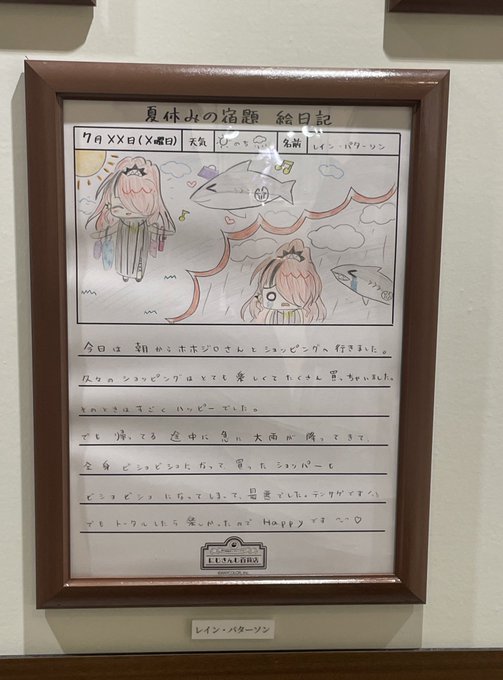 夏休みの宿題 絵日記
7月××日(×曜日) 天気 のち 名前 レイン・パターソン
今日は朝からホホジロさんとショッピングへ行きました。
久々のショッピングはとても楽しくてたくさん買っちゃいました。
そのときはすごくハッピーでした。
でも帰ってる途中に急に大雨が降ってきて、
全身ビショビショになって、買ったショッパーも
ビショビショになってしまって、最悪でした。テンサゲです
でもトータルしたら楽しかったのでHappyです♡
にじさんじ百貨店
©ANYCOLOR, Inc.
レイン・パターソン